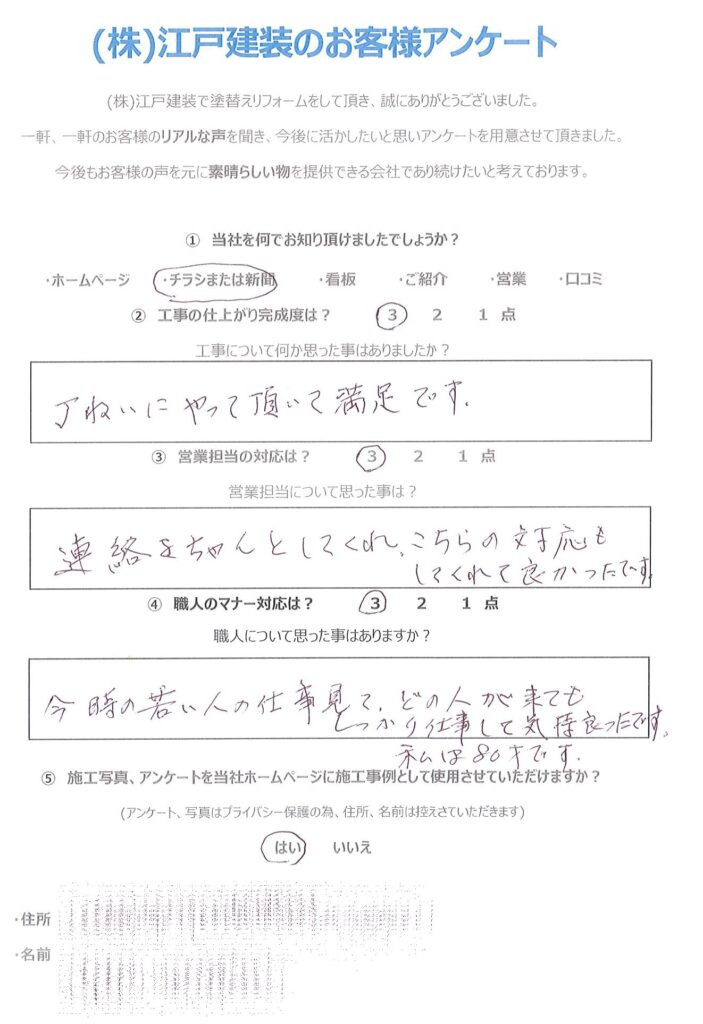 (株)江戸建装のお客様アンケート
(株)江戸建装で塗替えリフォームをして頂き、誠にありがとうございました。
一軒、一軒のお客様のリアルな声を聞き、今後に活かしたいと思いアンケートを用意させて頂きました。
今後もお客様の声を元に素晴らしい物を提供できる会社であり続けたいと考えております。
① 当社を何でお知り頂けましたでしょうか？
・ホームページ ・チラシまたは新聞 ・看板 ・ご紹介 ・営業 ・口コミ
② 工事の仕上がり完成度は？ 3 2 1 点
工事について何か思った事はありましたか？
丁ねいにやって頂いて満足です。
③ 営業担当の対応は？ 3 2 1 点
営業担当について思った事は？
連絡をちゃんとしてくれ、こちらの対応も
してくれて良かったです。
④ 職人のマナー対応は？ 3 2 1 点
職人について思った事はありますか？
今時の若い人の仕事見て、どの人が来ても
しっかり仕事して気持良ったです。
私は80才です.
⑤ 施工写真、アンケートを当社ホームページに施工事例として使用させていただけますか？
(アンケート、写真はプライバシー保護の為、住所、名前は控えさていただきます)
はい いいえ
・住所
・名前